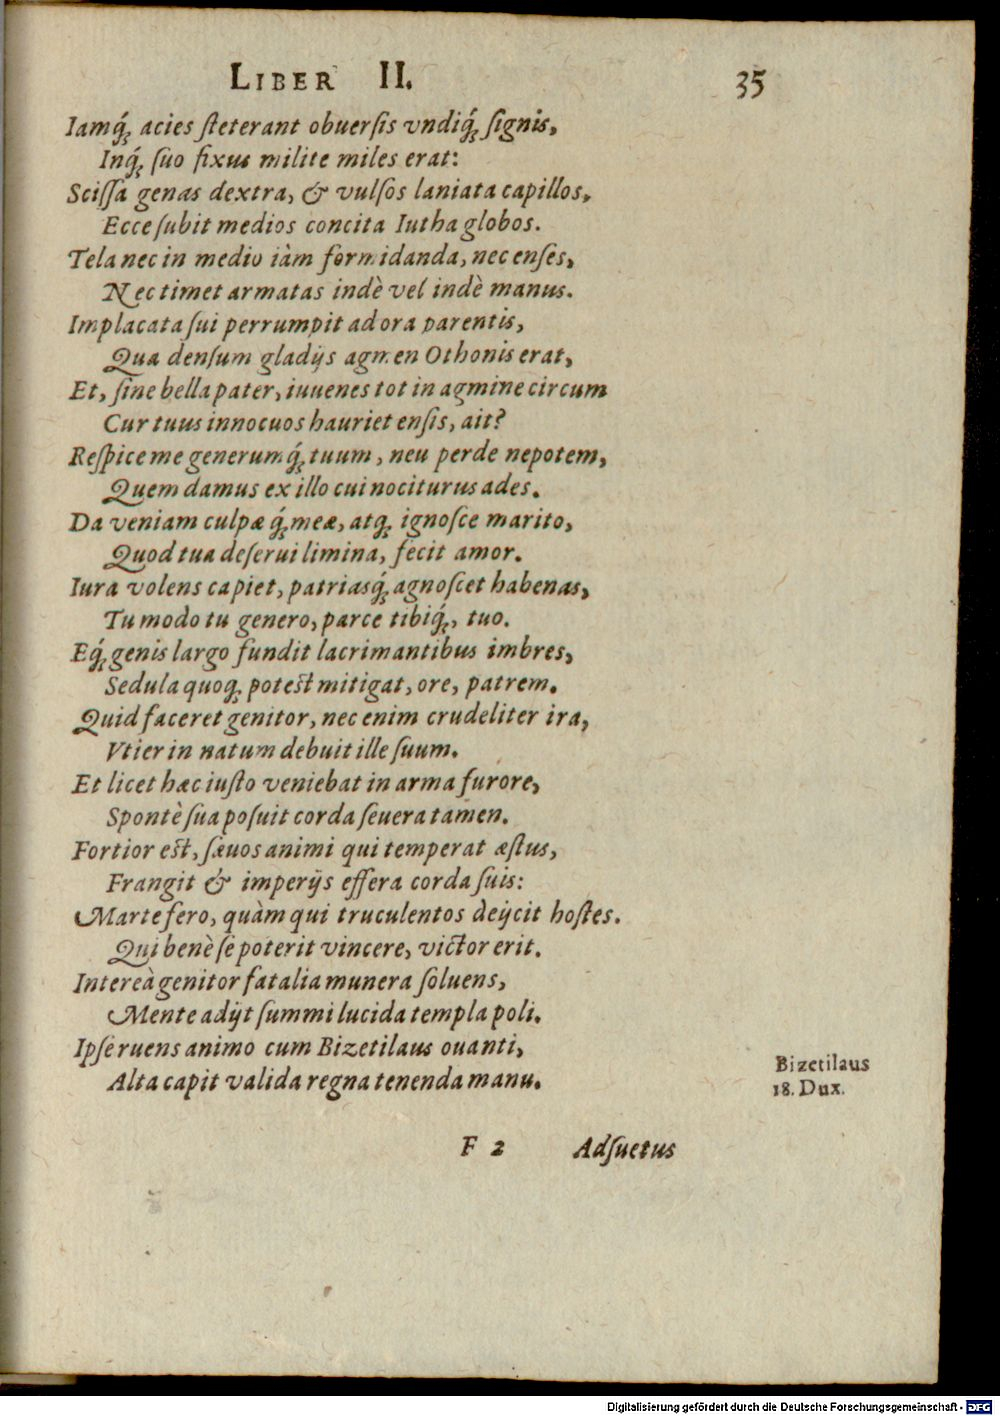 LIBER II. 35
Iamq́; acies ſteterant obuerſis vndiq́; ſignis,
Inq́; ſuo fixus milite miles erat:
Sciſſa genas dextra, & vulſos laniata capillos,
Ecce ſubit medios concita Iutha globos.
Tela nec in medio iàm formidanda, nec enſes,
Nec timet armatas indè vel indè manus.
Implacata ſui perrumpit ad ora parentis,
Qua denſum gladijs agmen Othonis erat,
Et, ſine bella pater, iuuenes tot in agmine circum
Cur tuus innocuos hauriet enſis, ait?
Reſpice me generumq́; tuum, neu perde nepotem,
Quem damus ex illo cui nociturus ades.
Da veniam culpæ q́; meæ, atq; ignoſce marito,
Quod tua deſerui limina, fecit amor.
Iura volens capiet, patriasq́; agnoſcet habenas,
Tu modò tu genero, parce tibiq́;, tuo.
Eq́; genis largo fundit lacrimantibus imbres,
Sedula quoq; poteſt mitigat, ore, patrem.
Quid faceret genitor, nec enim crudeliter ira,
Vtier in natum debuit ille ſuum.
Et licet hæc iuſto veniebat in arma furore,
Spontè ſua poſuit corda ſeuera tamen.
Fortior eſt, ſæuos animi qui temperat æſtus,
Frangit & imperijs effera corda ſuis:
Marte fero, quàm qui truculentos deijcit hoſtes.
Qui benè ſe poterit vincere, victor erit.
Intereà genitor fatalia munera ſoluens,
Mente adijt ſummi lucida templa poli.
Ipſe ruens animo cum Bizetilaus ouanti,
Alta capit valida regna tenenda manu.
Bizetilaus
18. Dux.
F 2 Adſuetus
Digitalisierung gefördert durch die Deutsche Forschungsgemeinschaft - DFG